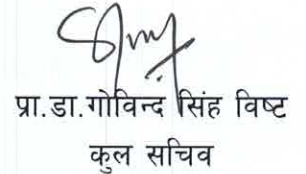 प्रा.डा.गोविन्द सिंह विष्ट
कुल सचिव